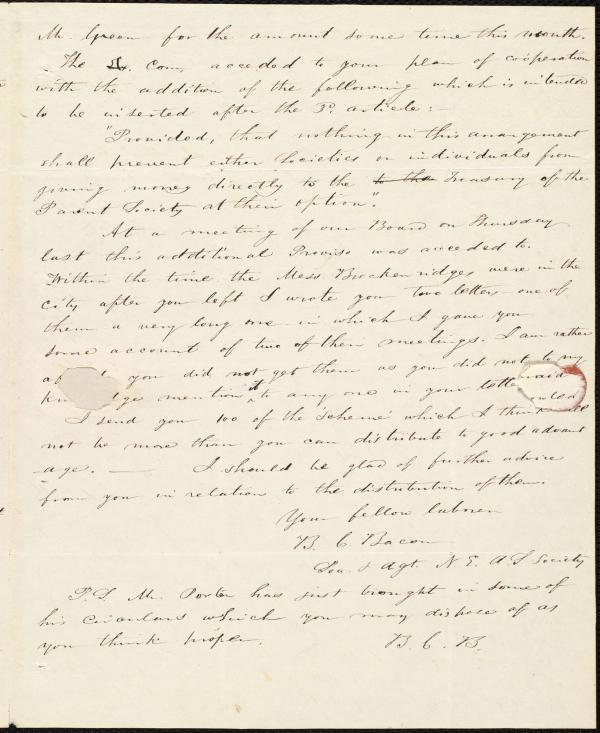 Mr. Green for the amount some time this month.
The Ex. Com. acceded to your plan of coöperation
with the addition of the following which is intended
to be inserted after the 3d. article: -
"Provided, that nothing in this arrangement
shall prevent either Societies or individuals from
giving money directly to the to the Treasury of the
Parent Society at their option".
At a meeting of our Board on Thursday
last this additional Proviso was acceded to.
Within the time the Mess. Breckenridges were in the
city after you left I wrote you two letters - one of
them a very long one - in which I gave you
some account of two of their meetings. I am rather
you did not get them as you did not to my
mention it to any one in your letter
I send you 100 of the 'Scheme' which I think
not be more than you can distribute to good advant
age. — I should be glad of further advice
from you in relation to the distribution of them.
Your fellow laborer
B. C. Bacon
Sec. & Agt. N. E. A. S. Society
P.S. Mr. Porter has just brought in some of
his circulars which you may dispose of as
you think proper.
B. C. B.